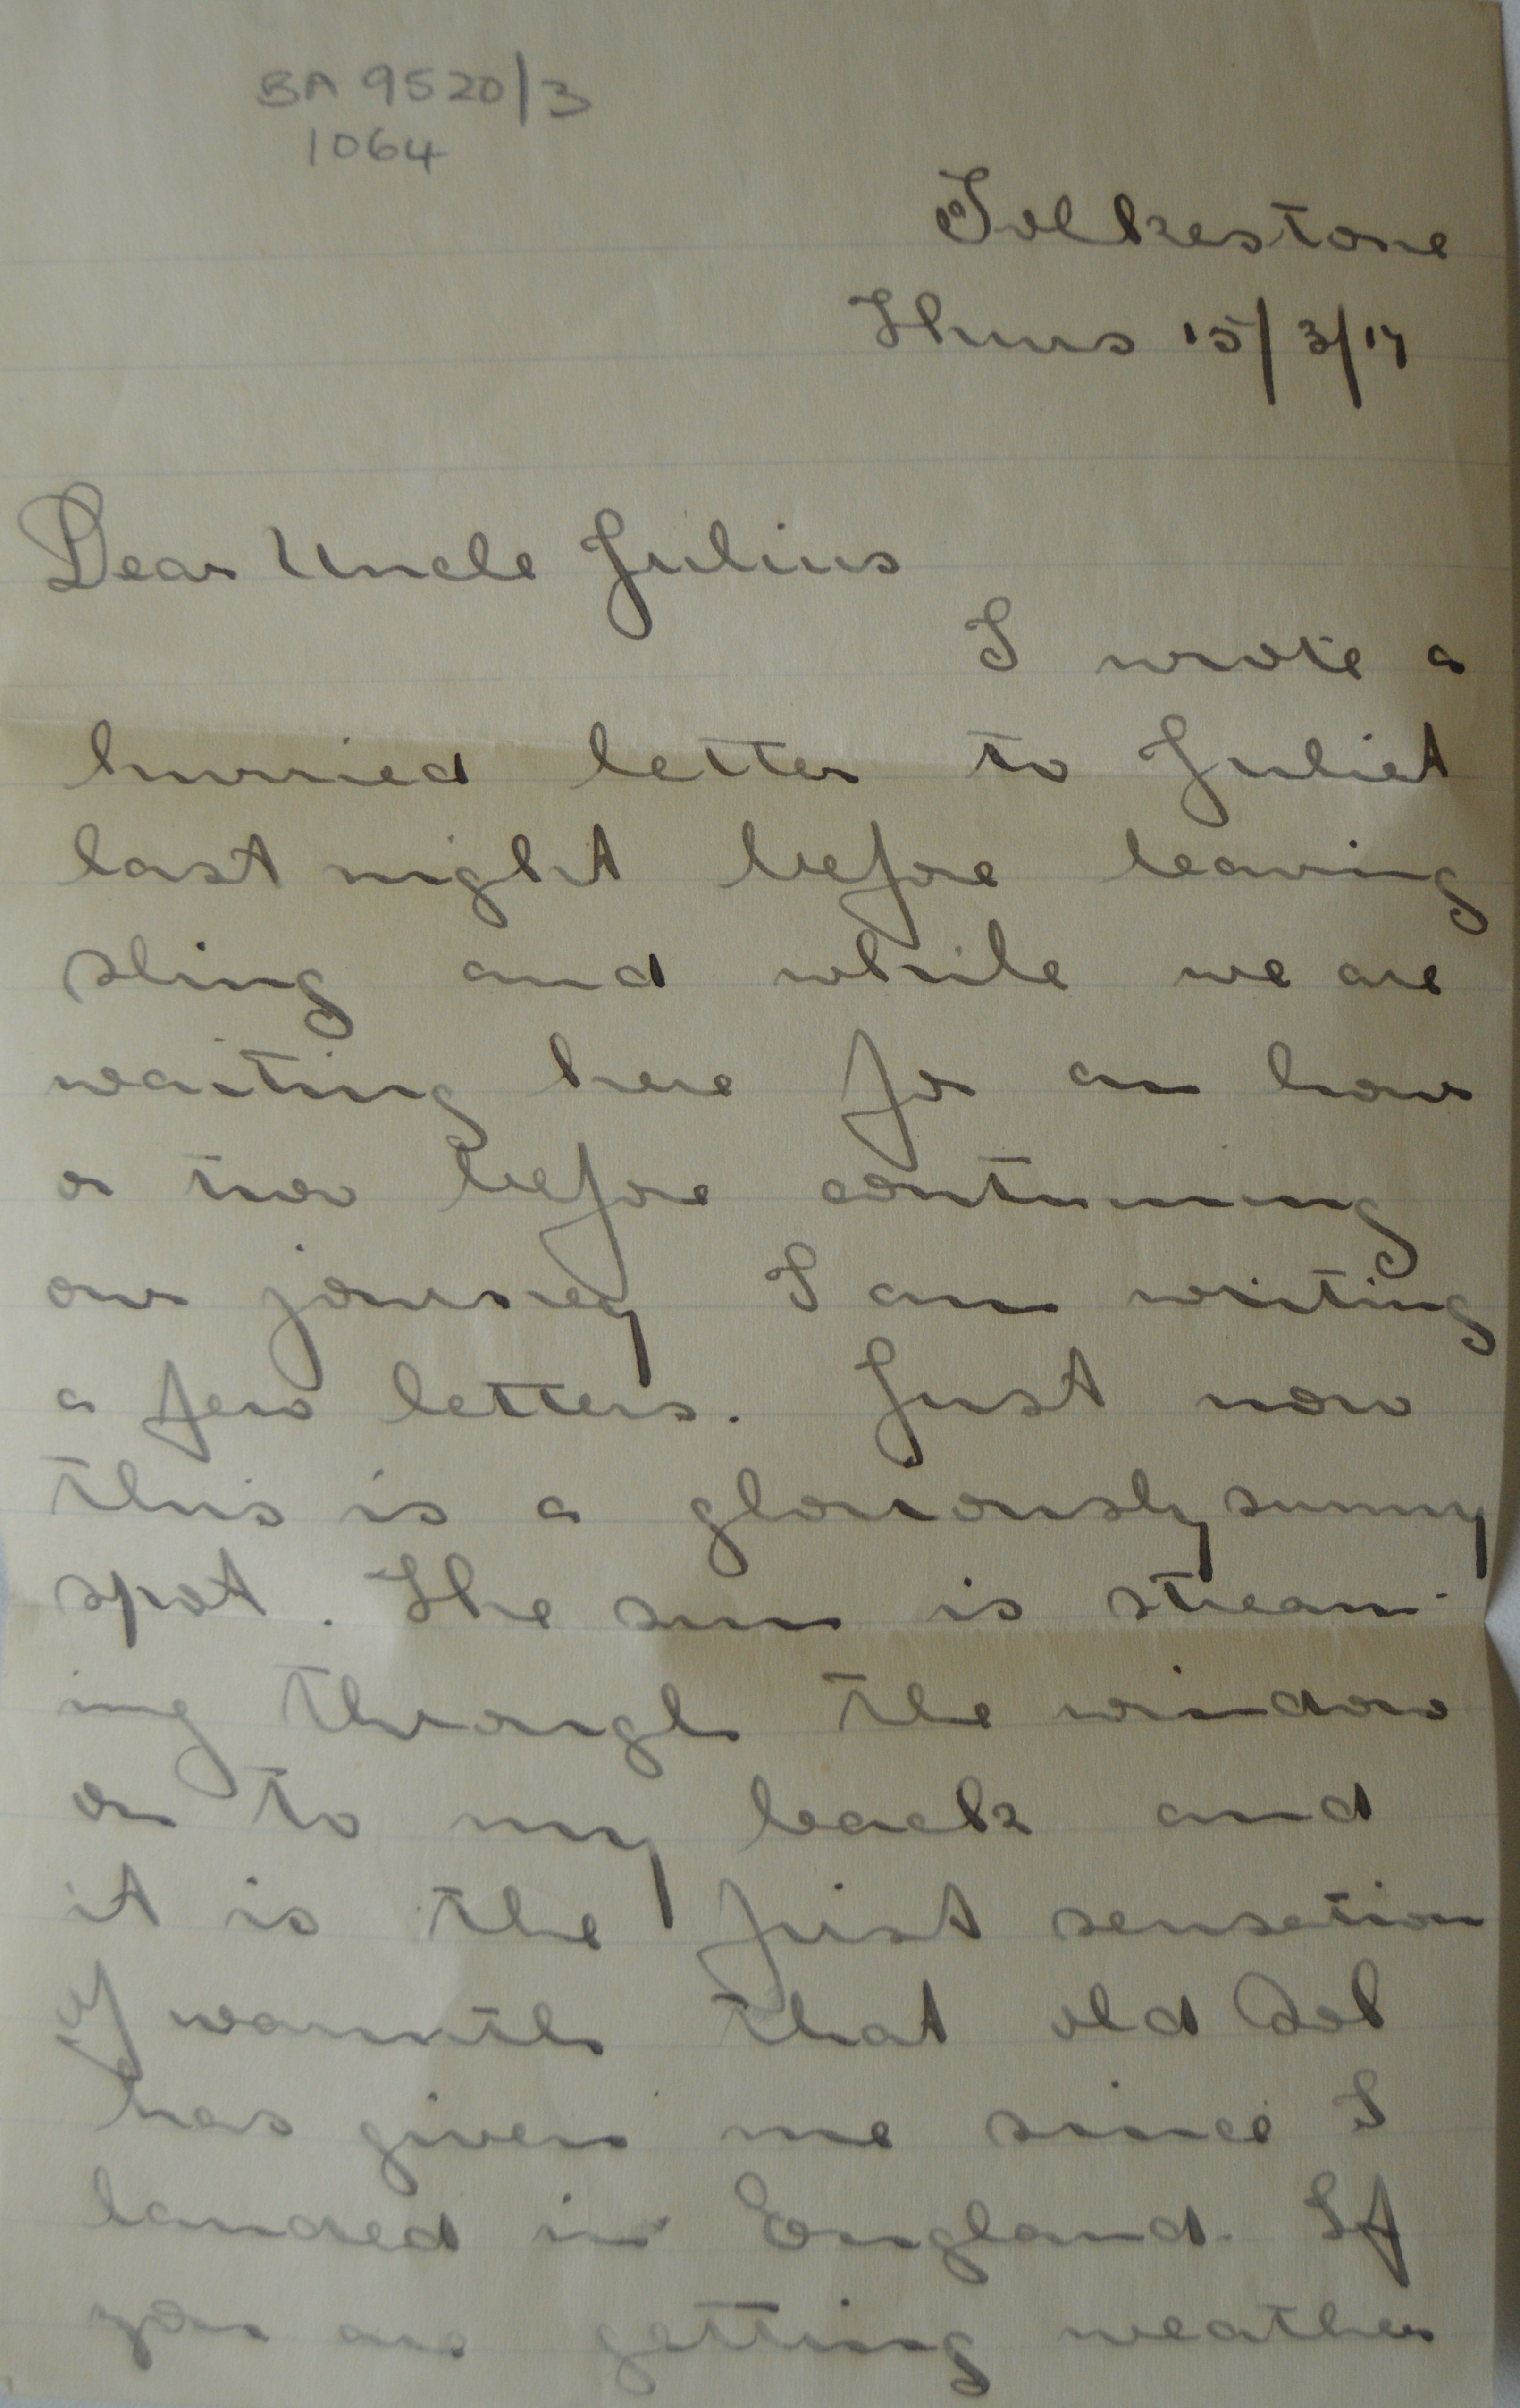 BA 9520/3
1064
Folkestone
Thurs 15/3/17
Dear Uncle Julius
I wrote a
hurried letter to Juliet
last night before leaving
sling and while we are
waiting here for an hour
or two before continuing
our journey I am writing
a few letters. Just now
this is a gloriously sunny
spot. The sun is stream-
ing through the window
on to my back and
it is the first sensation
of warmth that old Sol
has given me since I
landed in England. If
you are getting weather